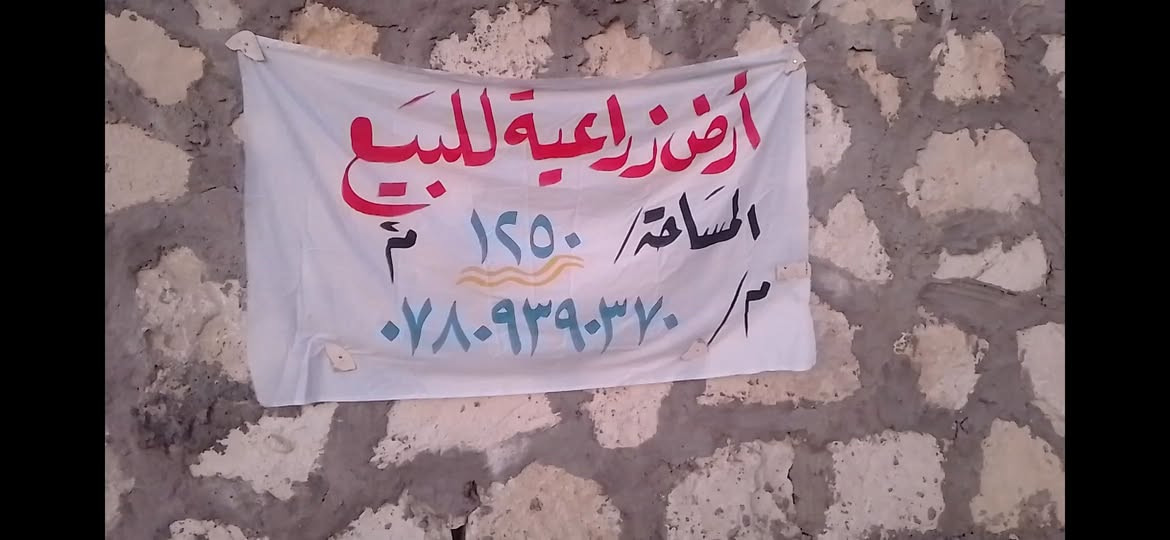 أرض زراعية للبيع
المساحة/ ١٢٥٠ م
م/ ٠٧٨٠٩٣٩٠٣٧٠